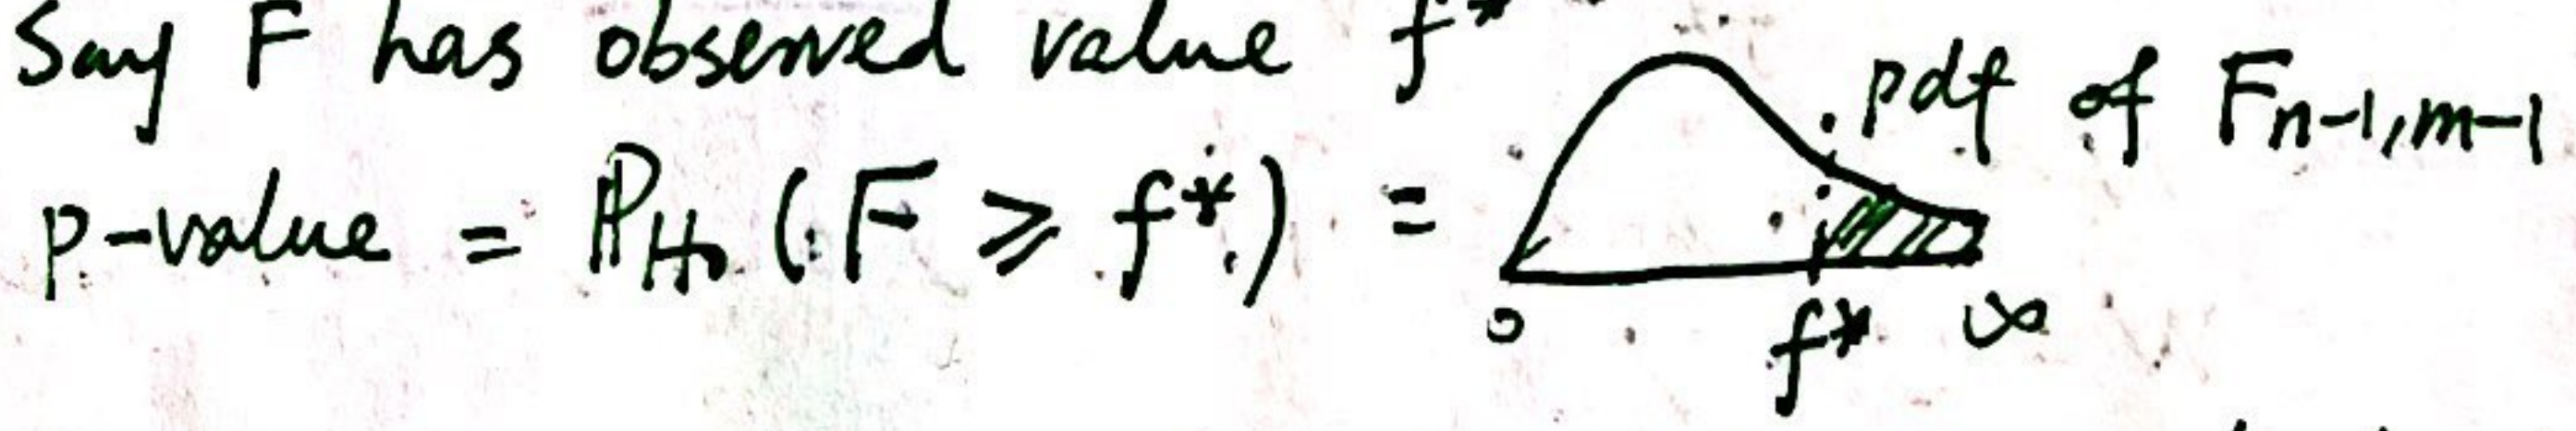 Say F has observed value f*
pdf of Fn-1,m-1
p-value = PH0 (F ≥ f*) =
0 f* ∞